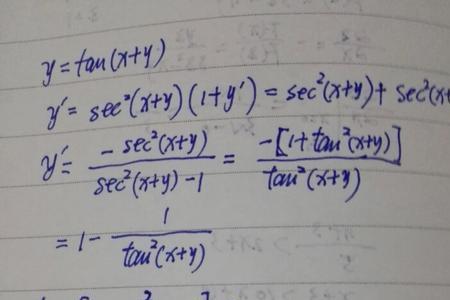 y = tan(x+y)
y' = sec²(x+y)(1+y') = sec²(x+y) + sec²(x
y' = -sec²(x+y) / sec²(x+y) - 1 = -[1+tan²(x+y)] / tan²(x+y)
= 1 - 1 / tan²(x+y)